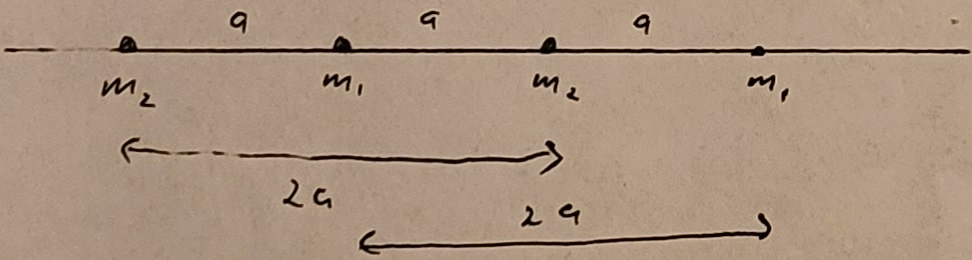 a a a
m₂ m₁ m₂ m₁
2a
2a